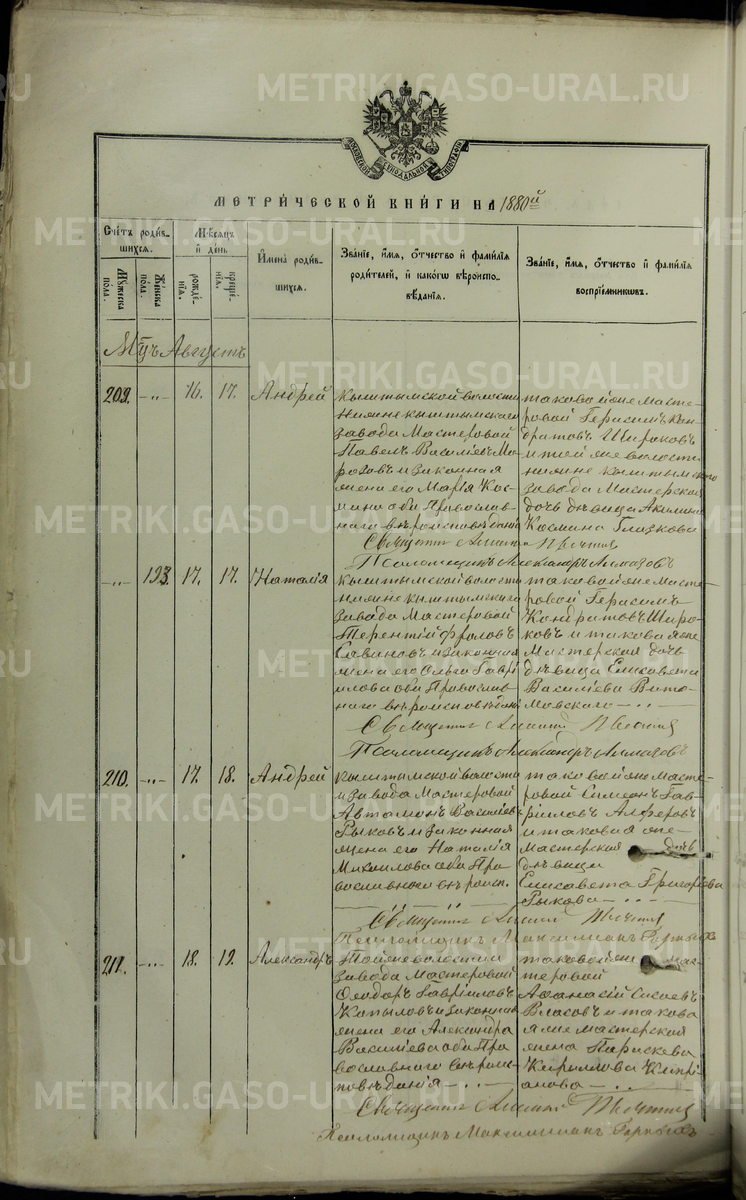 METRIKI.GASO-URAL.RU
МОСКОВСКОЙ СѴНОДАЛЬНОЙ ТИПОГРАФІИ
МЕТРИ́ЧЕСКОЙ КНИ́ГИ НА 1880й
Сче́тъ роди́в-
шихся.
Му́жеска
пола.
Же́нска
пола.
Мѣ́сяцъ
и҆ де́нь
рожде́-
нїя.
креще́-
нїя.
И҆мена̀ роди́в-
шихся.
Зва́нїе, и҆́мя, ѻ҆́тчество и҆ фами́лїя
роди́телей, и҆ како́гѡ вѣроиспо-
вѣ́данїя.
Зва́нїе, и҆́мя, ѻ҆́тчество и҆ фами́лїя
воспрїе́мникѡвъ.
Мцъ Августъ
209. -„- 16. 17. Андрей
Кыштымской волости
Нижнекыштымскаго
завода Мастеровой
Павелъ Васильевъ Мо-
розовъ и законная
жена его Марія Кос-
мина оба Православ-
наго вѣроисповѣданія
таковой же масте-
ровой Герасимъ Кон-
дратовъ Широковъ
и той же волости
нижне кыштымского
завода Мастерская
дочь дѣвица Акилина
Космина Глазкова
Священникъ
Псаломщикъ Александръ
-„- 193. 17. 17. Наталія
Кыштымской волости
нижне кыштымскаго
завода Мастеровой
Терентій Фроловъ
Савиновъ и законная
жена его Ольга Гаврі
илова оба Православ-
наго вѣроисповѣданія
таковой же масте-
ровой Герасимъ
Кондратовъ Широ-
ковъ и таковая же
Мастерская дочь
дѣвица Елисавета
Васильева
Священникъ
Псаломщикъ Александръ
210. -„- 17. 18. Андрей
Кыштымской волости
и завода Мастеровой
Автамонъ Васильевъ
Рыковъ и законная
жена его Наталія
Михайлова оба Пра
вославнаго вѣроисп.
таковой же масте-
ровой Симеонъ Гав-
ріиловъ Алферовъ
и таковая же-
мастерская дочь
дѣвица
Елисавета Григорьева
Рыкова
Священникъ
Псаломщикъ Максимиліанъ
211. -„- 18. 19. Александръ
Той же волости и
завода Мастеровой
Ѳеодоръ Гавріиловъ
Копыловъ и законная
жена его Александра
Васильева оба Пра
вославнаго вѣроис-
повѣданія
таковой же мас-
теровой
Аѳанасій Сисоевъ
Власовъ и такова
я же мастерская
жена Параскева
Кириллова Кипрі-
анова
Священникъ
Псаломщикъ Максимиліанъ